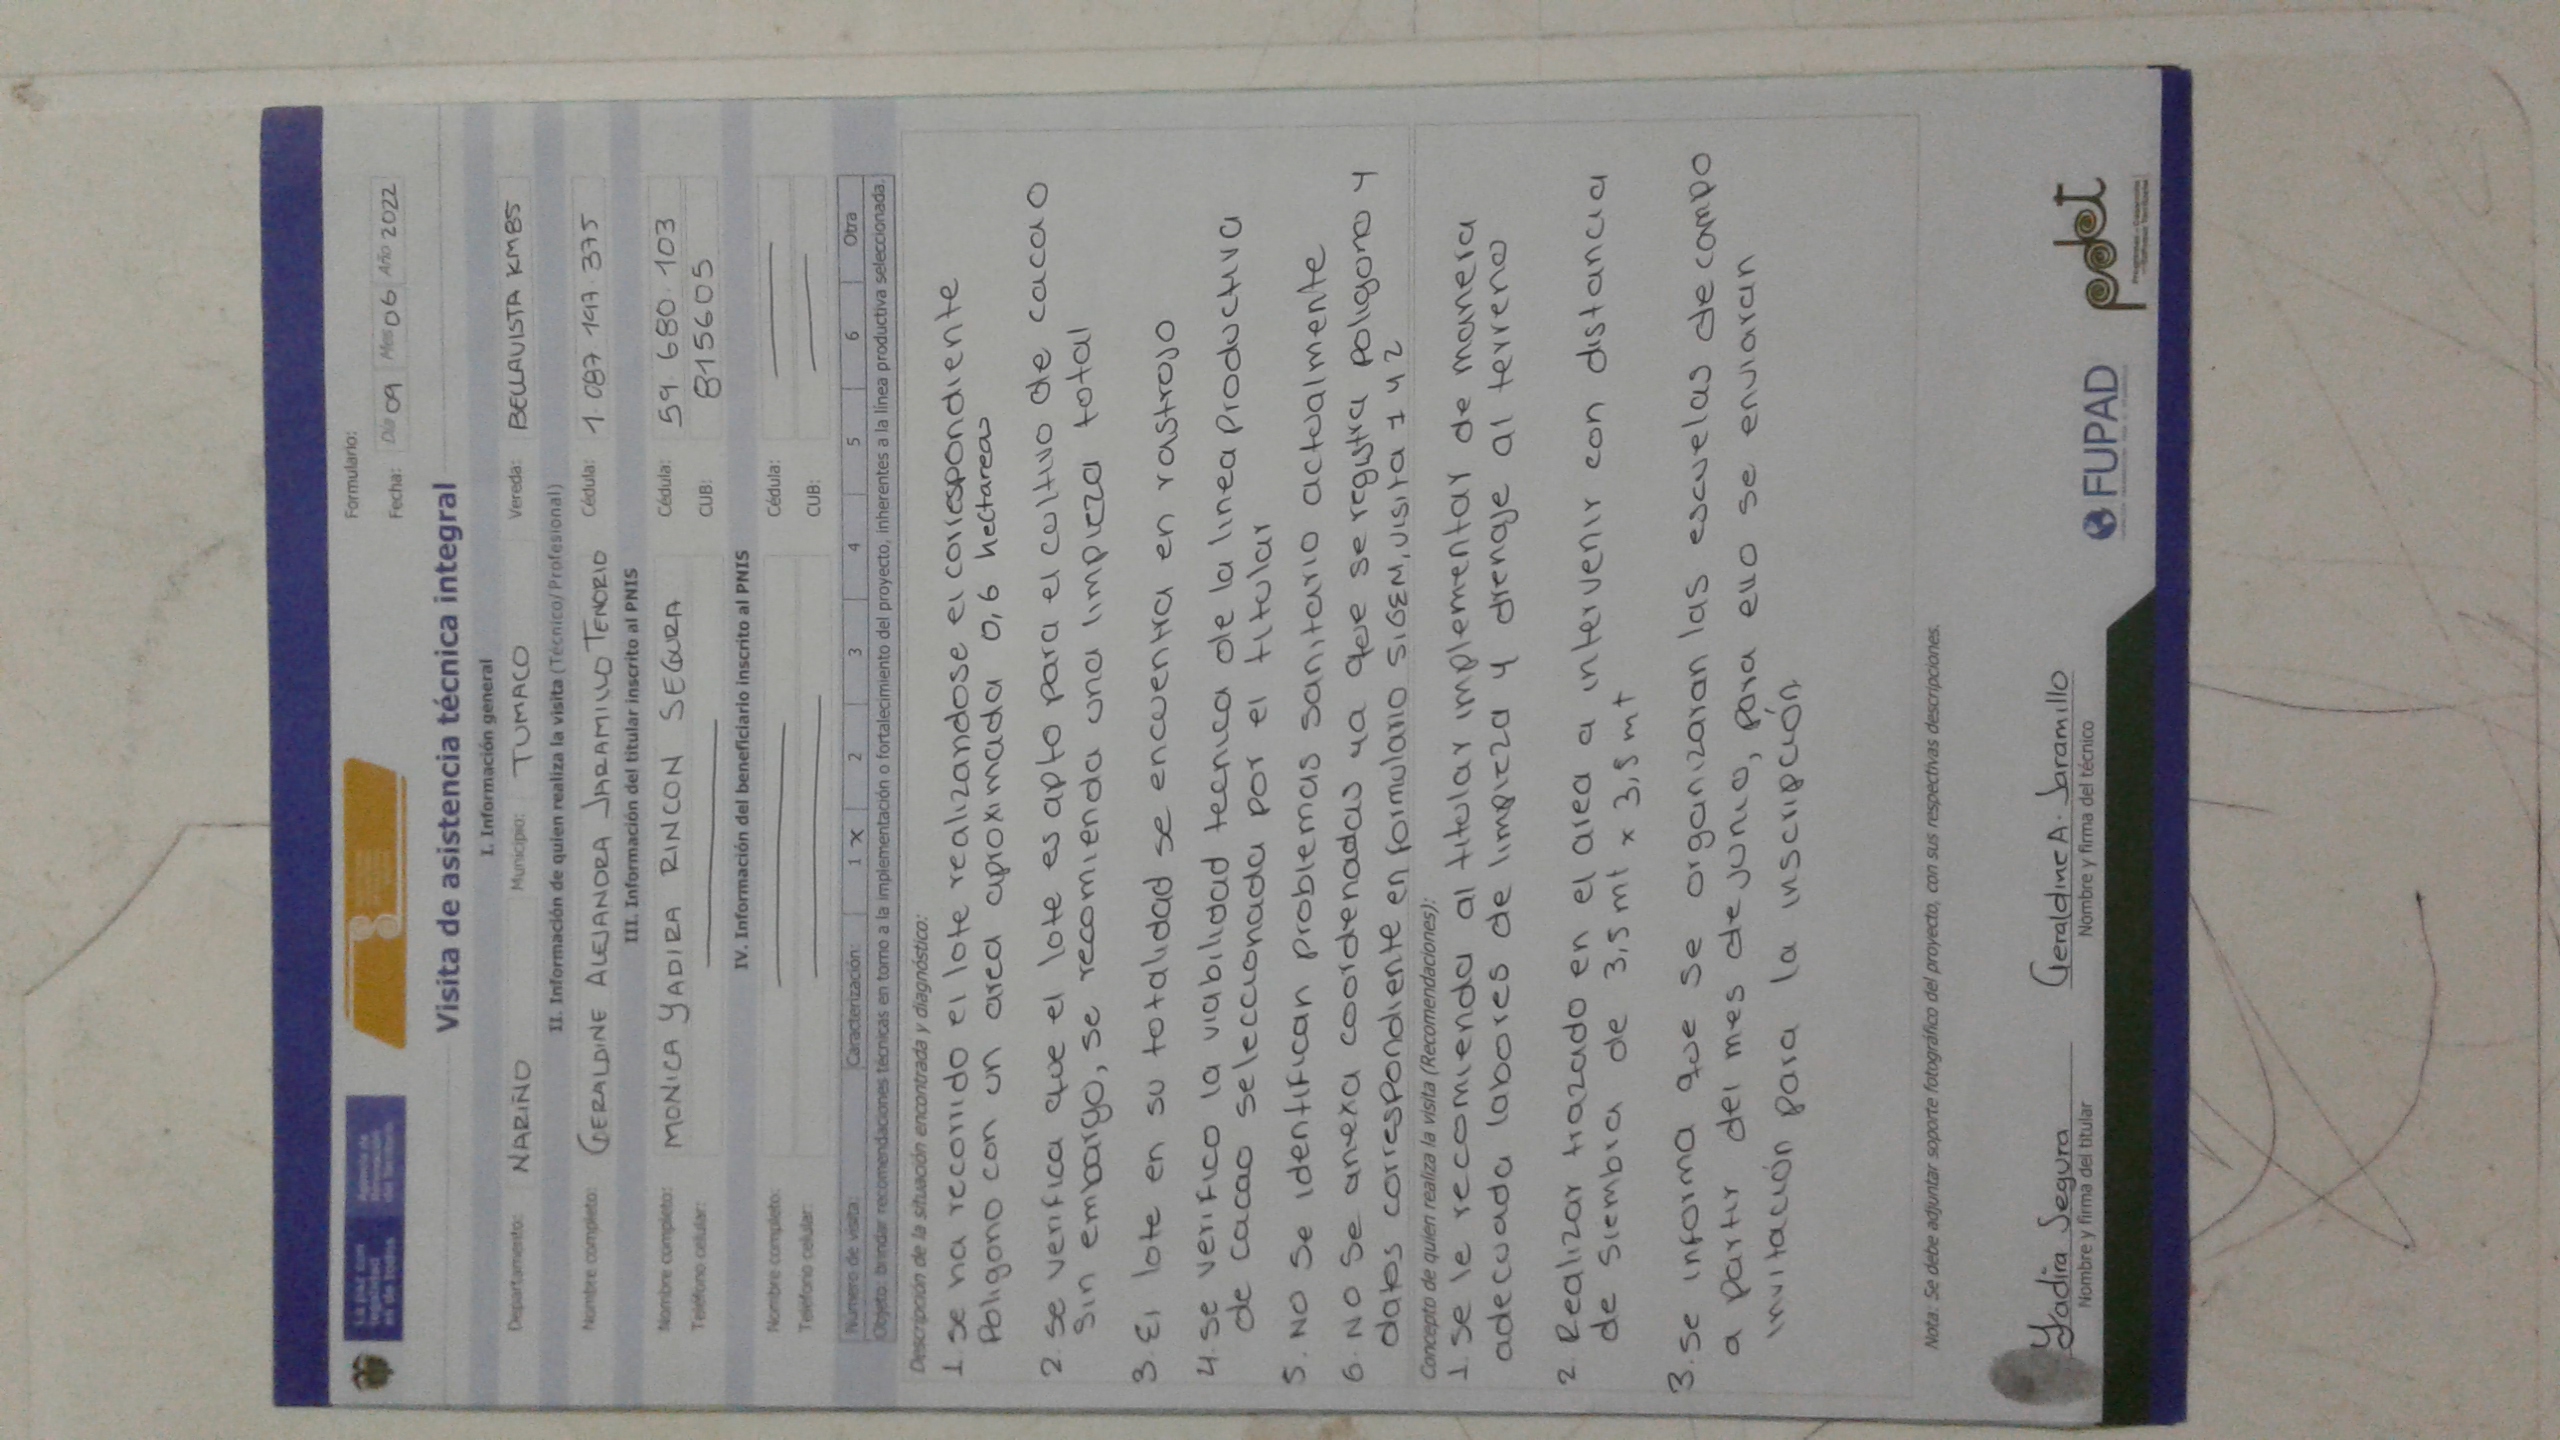 La paz con
legalidad
es de todos
Agencia de
Renovación
del Territorio
Formulario:
Fecha: Día 09 Mes 06 Año 2022
Visita de asistencia técnica integral
I. Información general
Departamento: NARIÑO Municipio: TUMACO Vereda: BELLAVISTA KM85
II. Información de quien realiza la visita (Técnico/ Profesional)
Nombre completo: GERALDINE ALEJANDRA JARAMILLO TENORIO Cédula: 1.087.197.375
III. Información del titular inscrito al PNIS
Nombre completo: MONICA YADIRA RINCON SEGURA Cédula: 59.680.103
Teléfono celular: CUB: 815605
IV. Información del beneficiario inscrito al PNIS
Nombre completo: Cédula:
Teléfono celular: CUB:
Número de visita: Caracterización: 1 X 2 3 4 5 6 Otra
Objeto: brindar recomendaciones técnicas en torno a la implementación o fortalecimiento del proyecto, inherentes a la línea productiva seleccionada.
Descripción de la situación encontrada y diagnóstico:
1. se ha recorrido el lote realizandose el correspondiente
Poligono con un area aproximada 0,6 hectareas
2. se verifica que el lote es apto para el cultivo de cacao
sin embargo, se recomienda una limpieza total
3. El lote en su totalidad se encuentra en rastrojo
4. se verifico la viabilidad tecnica de la linea productiva
de cacao seleccionada por el titular
5. NO se identifican problemas sanitario actualmente
6. NO se anexa coordenadas ya que se registra poligono y
datos correspondiente en formulario SIGEM, visita 1 y 2
Concepto de quien realiza la visita (Recomendaciones):
1. se le recomienda al titular implementar de manera
adecuada labores de limpieza y drenaje al terreno
2. Realizar trazado en el area a intervenir con distancia
de siembra de 3,5 mt x 3,5 mt
3. se informa que se organizaran las escuelas de campo
a partir del mes de junio, para ello se enviaran
invitación para la inscripción
Nota: Se debe adjuntar soporte fotográfico del proyecto, con sus respectivas descripciones.
Yadira Segura
Nombre y firma del titular
Geraldine A. Jaramillo
Nombre y firma del técnico
FUPAD
pdet